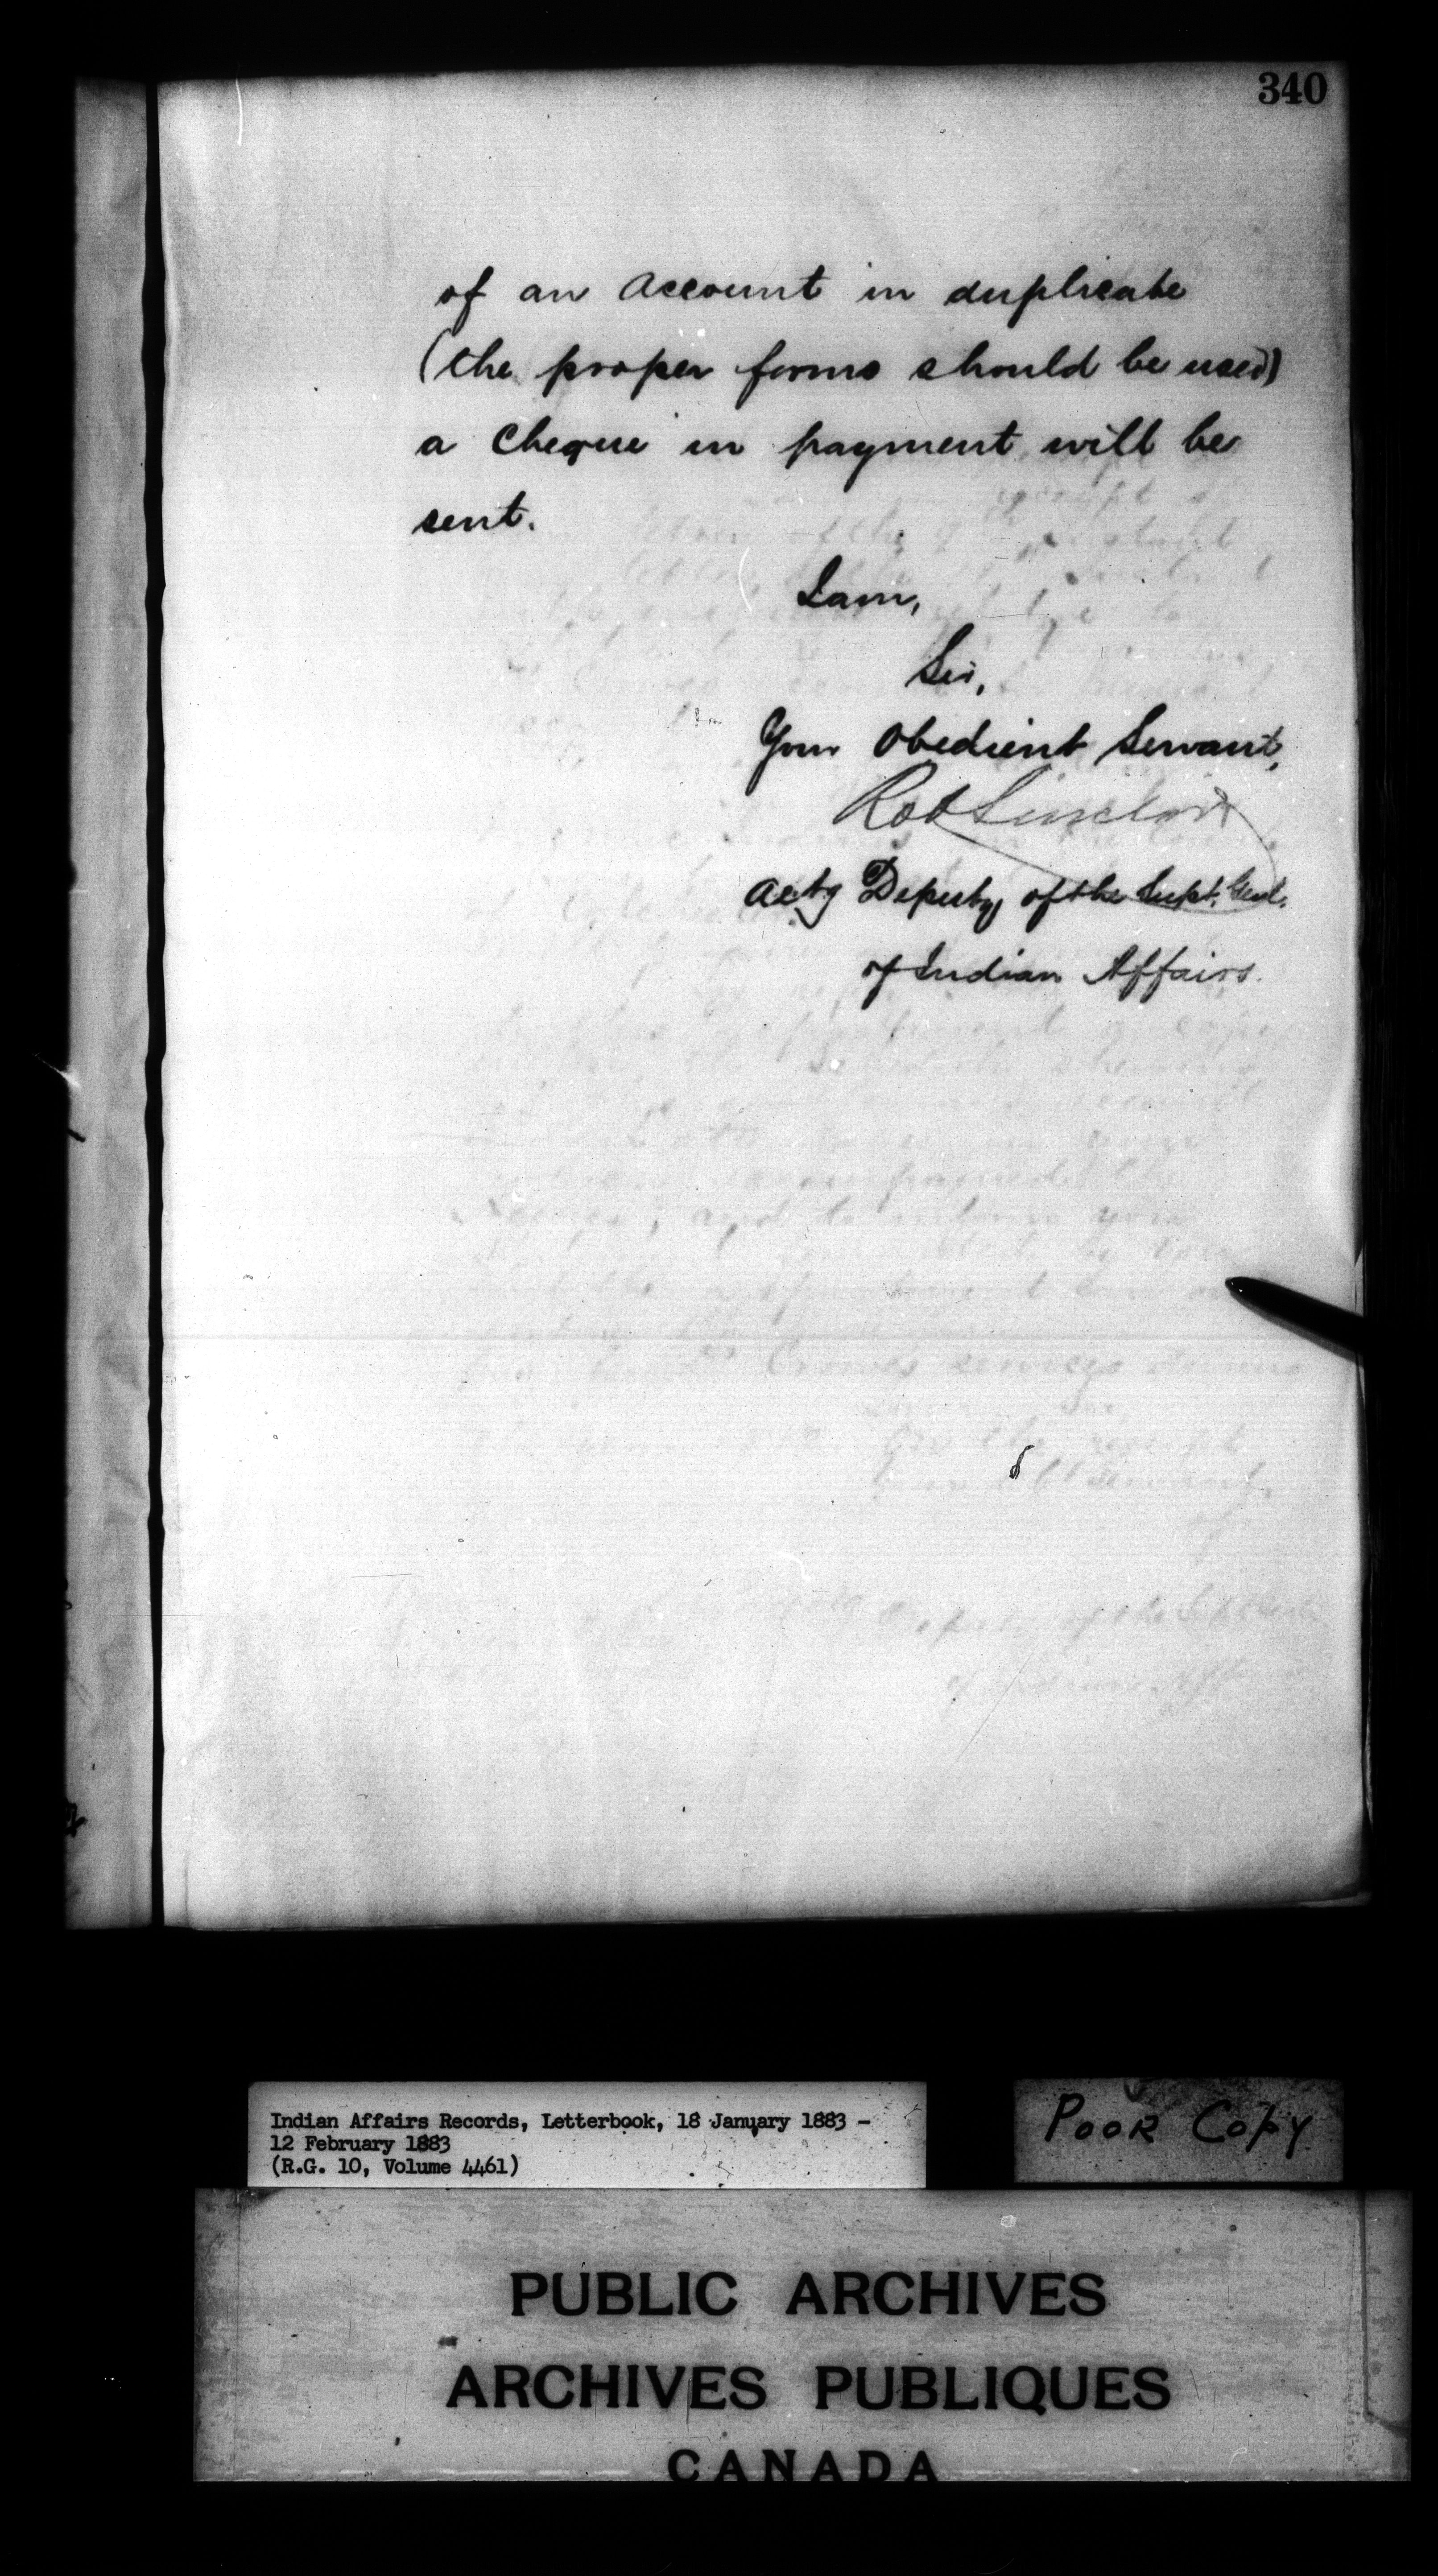 340
of an Account in duplicate
(the proper forms should be used)
a Cheque in payment will be
sent.
I am,
Sir,
Your Obedient Servant,
Rob Sinclair
Actg Deputy of the Supt. Genl.
of Indian Affairs.
Indian Affairs Records, Letterbook, 18 January 1883 -
12 February 1883
(R.G. 10, Volume 4461)
POOR COPY
PUBLIC ARCHIVES
ARCHIVES PUBLIQUES
CANADA